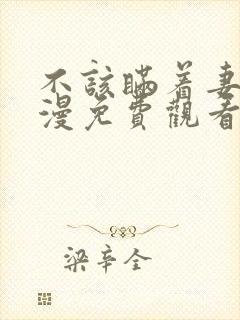 不該瞞着妻
漫免費觀看
梁辛全